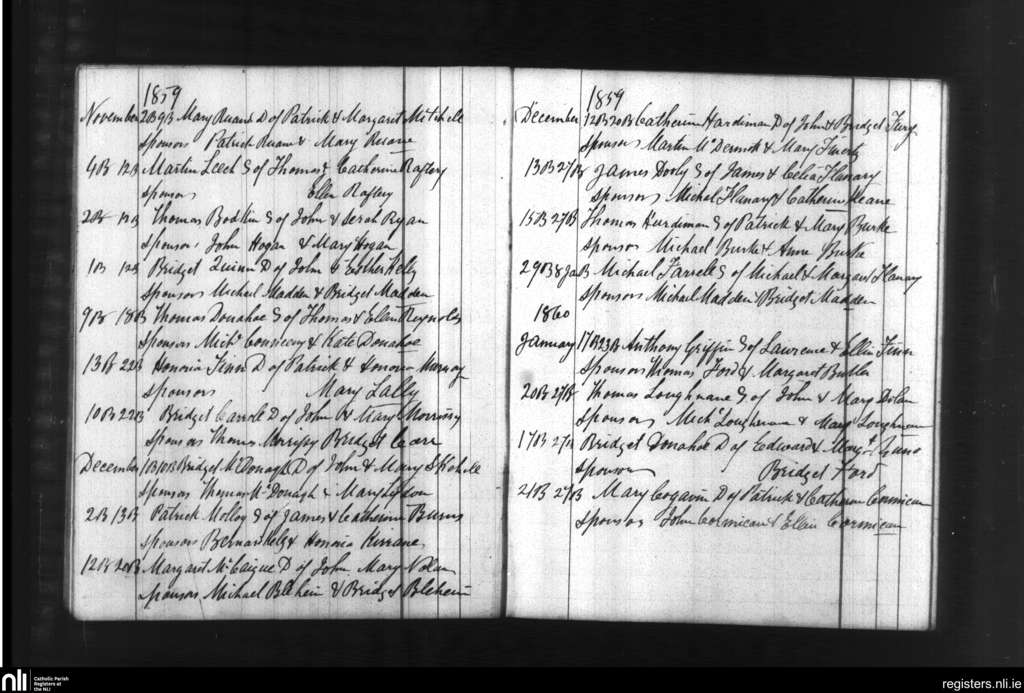 1859
November 2B 9B Mary Ruane D of Patrick & Margaret Mitchell
Sponsors Patrick Ruane & Mary Ruane
4B 12B Martin Leech S of Thomas & Catherine Raftery
Sponsors Ellen Raftery
2B 12B Thomas Bodkin S of John & Serah Ryan
Sponsors John Hogan & Mary Hogan
1B 12B Bridget Quinn D of John & Esther Kelly
Sponsors Michael Madden & Bridget Madden
9B 18B Thomas Donahoe S of Thomas & Ellen Reynolds
Sponsors Mich' & Kate Donahoe
13B 22B Honoria Finn D of Patrick & Honoria Murray
Sponsors Mary Lally
10B 22B Bridget Carrole D of John & Mary Morrissy
Sponsors Thomas Morrissy Bridget Carr
December 10B Bridget McDonagh D of John & Mary
Sponsors Thomas McDonagh & Mary Lydon
2B 13B Patrick Molloy S of James & Catherine Burns
Sponsors Bernard & Honoria Kirrane
12B 20B Margaret McCaigue D of John Mary Nolan
Sponsors Michael Blehein & Bridget Blehein
1859
December 12B 20B Catherine Hardiman D of John & Bridget Fury
Sponsors Martin McDermott & Mary
13B 27B James Dooly S of James & Celia Flanary
Sponsors Michael Flanary & Catherine Keane
15B 27B Thomas Hardiman S of Patrick & Mary Burke
Sponsors Michael Burke & Anne Burke
29B 8JaB Michael Farrell S of Michael & Margaret Flanary
Sponsors Michael Madden Bridget Madden
1860
January 17B 23B Anthony Griffin S of Lawrence & Ellen Finn
Sponsors Thomas Ford & Margaret Butler
20B 27B Thomas Loughnane S of John & Mary Dolan
Sponsors Mich' Loughnane & Mary Loughnane
17B 27B Bridget Donahoe D of Edward &
Sponsors Bridget Ford
21B 27B Mary Cogavin D of Patrick & Catherine Cormican
Sponsors John Cormican & Ellen Cormican
nli Catholic Parish
Registers at
the NLI
registers.nli.ie